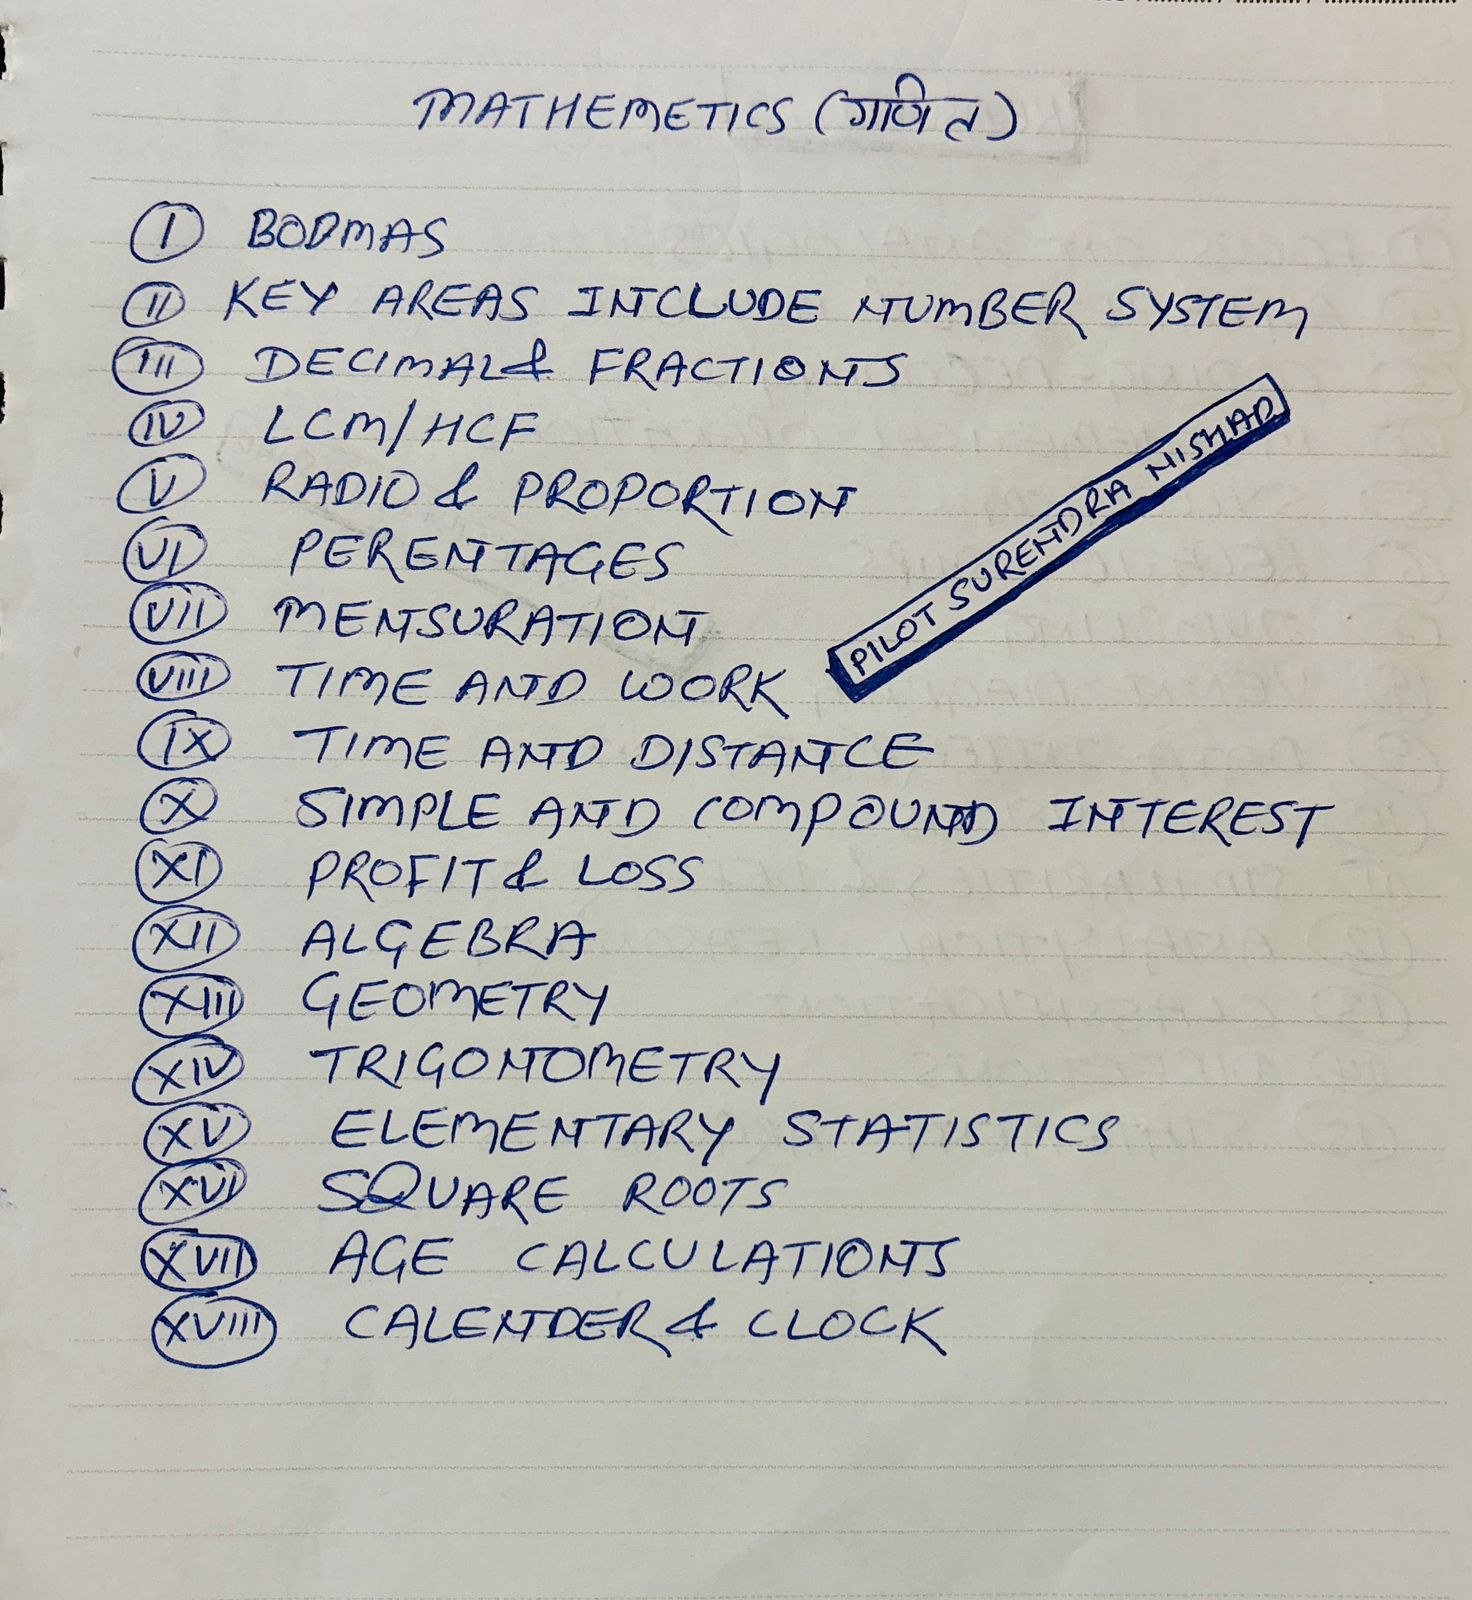 MATHEMETICS (गणित)
I BODMAS
II KEY AREAS INCLUDE NUMBER SYSTEM
III DECIMAL & FRACTIONS
IV LCM/HCF
V RADIO & PROPORTION
VI PERENTAGES
VII MENSURATION
VIII TIME AND WORK
IX TIME AND DISTANCE
X SIMPLE AND COMPOUND INTEREST
XI PROFIT & LOSS
XII ALGEBRA
XIII GEOMETRY
XIV TRIGONOMETRY
XV ELEMENTARY STATISTICS
XVI SQUARE ROOTS
XVII AGE CALCULATIONS
XVIII CALENDER & CLOCK
PILOT SURENDRA NISHAD